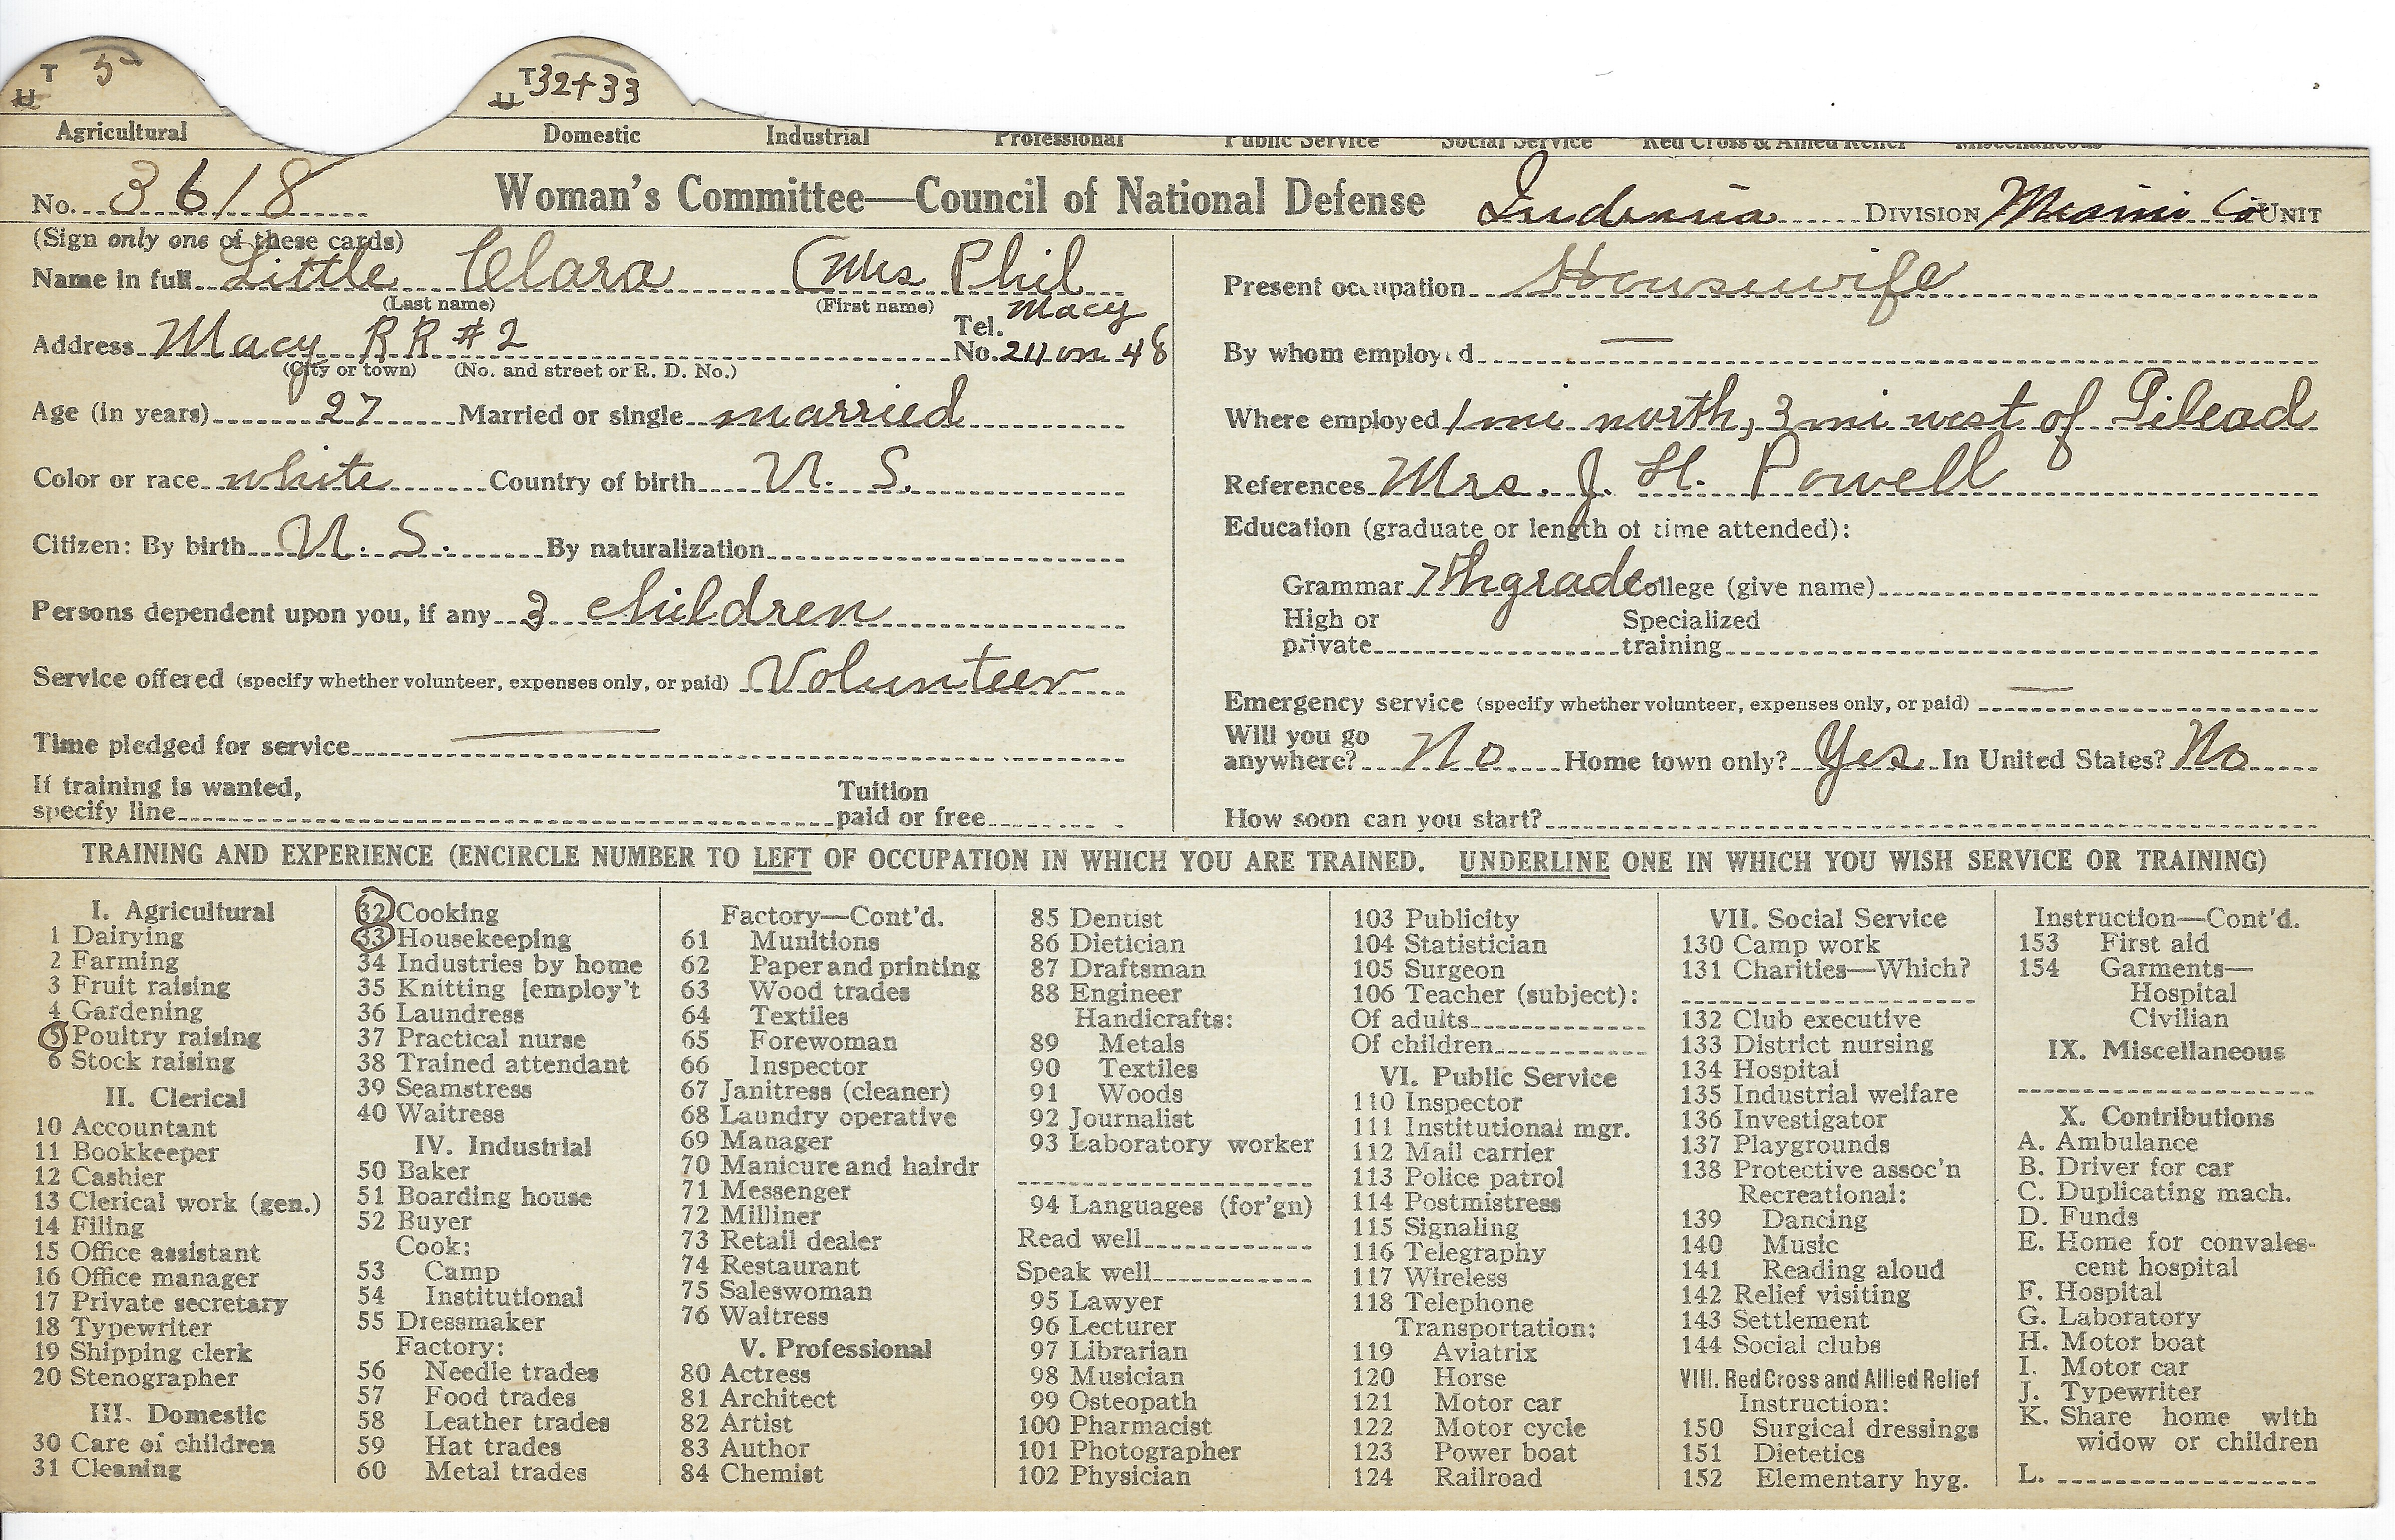 T 5 T 32+33
U U
Agricultural Domestic Industrial Professional Public Service Social Service Red Cross & Allied Relief Miscellaneous
No. 3618 Woman's Committee—Council of National Defense Indiana DIVISION Miami Co UNIT
(Sign only one of these cards)
Name in full Little Clara (Mrs Phil
(Last name) (First name)
Address Macy RR #2 Tel. No. Macy 24 on 48
(City or town) (No. and street or R. D. No.)
Age (in years) 27 Married or single married
Color or race white Country of birth U. S.
Citizen: By birth U. S. By naturalization
Persons dependent upon you, if any 3 children
Service offered (specify whether volunteer, expenses only, or paid) Volunteer
Time pledged for service —
If training is wanted, specify line Tuition paid or free
Present occupation Housewife
By whom employed —
Where employed 1 mi north, 3 mi west of Gilead
References Mrs. J. H. Powell
Education (graduate or length of time attended):
Grammar 7th grade College (give name)
High or private Specialized training
Emergency service (specify whether volunteer, expenses only, or paid) —
Will you go anywhere? No Home town only? Yes In United States? No
How soon can you start?
TRAINING AND EXPERIENCE (ENCIRCLE NUMBER TO LEFT OF OCCUPATION IN WHICH YOU ARE TRAINED. UNDERLINE ONE IN WHICH YOU WISH SERVICE OR TRAINING)
I. Agricultural
1 Dairying
2 Farming
3 Fruit raising
4 Gardening
5 Poultry raising
6 Stock raising
II. Clerical
10 Accountant
11 Bookkeeper
12 Cashier
13 Clerical work (gen.)
14 Filing
15 Office assistant
16 Office manager
17 Private secretary
18 Typewriter
19 Shipping clerk
20 Stenographer
III. Domestic
30 Care of children
31 Cleaning
32 Cooking
33 Housekeeping
34 Industries by home
35 Knitting [employ't
36 Laundress
37 Practical nurse
38 Trained attendant
39 Seamstress
40 Waitress
IV. Industrial
50 Baker
51 Boarding house
52 Buyer
Cook:
53 Camp
54 Institutional
55 Dressmaker
Factory:
56 Needle trades
57 Food trades
58 Leather trades
59 Hat trades
60 Metal trades
Factory—Cont'd.
61 Munitions
62 Paper and printing
63 Wood trades
64 Textiles
65 Forewoman
66 Inspector
67 Janitress (cleaner)
68 Laundry operative
69 Manager
70 Manicure and hairdr
71 Messenger
72 Milliner
73 Retail dealer
74 Restaurant
75 Saleswoman
76 Waitress
V. Professional
80 Actress
81 Architect
82 Artist
83 Author
84 Chemist
85 Dentist
86 Dietician
87 Draftsman
88 Engineer
Handicrafts:
89 Metals
90 Textiles
91 Woods
92 Journalist
93 Laboratory worker
94 Languages (for'gn)
Read well
Speak well
95 Lawyer
96 Lecturer
97 Librarian
98 Musician
99 Osteopath
100 Pharmacist
101 Photographer
102 Physician
103 Publicity
104 Statistician
105 Surgeon
106 Teacher (subject):
Of adults
Of children
VI. Public Service
110 Inspector
111 Institutional mgr.
112 Mail carrier
113 Police patrol
114 Postmistress
115 Signaling
116 Telegraphy
117 Wireless
118 Telephone
Transportation:
119 Aviatrix
120 Horse
121 Motor car
122 Motor cycle
123 Power boat
124 Railroad
VII. Social Service
130 Camp work
131 Charities—Which?
132 Club executive
133 District nursing
134 Hospital
135 Industrial welfare
136 Investigator
137 Playgrounds
138 Protective assoc'n
Recreational:
139 Dancing
140 Music
141 Reading aloud
142 Relief visiting
143 Settlement
144 Social clubs
VIII. Red Cross and Allied Relief
Instruction:
150 Surgical dressings
151 Dietetics
152 Elementary hyg.
Instruction—Cont'd.
153 First aid
154 Garments—
Hospital
Civilian
IX. Miscellaneous
X. Contributions
A. Ambulance
B. Driver for car
C. Duplicating mach.
D. Funds
E. Home for convales-
cent hospital
F. Hospital
G. Laboratory
H. Motor boat
I. Motor car
J. Typewriter
K. Share home with
widow or children
L.